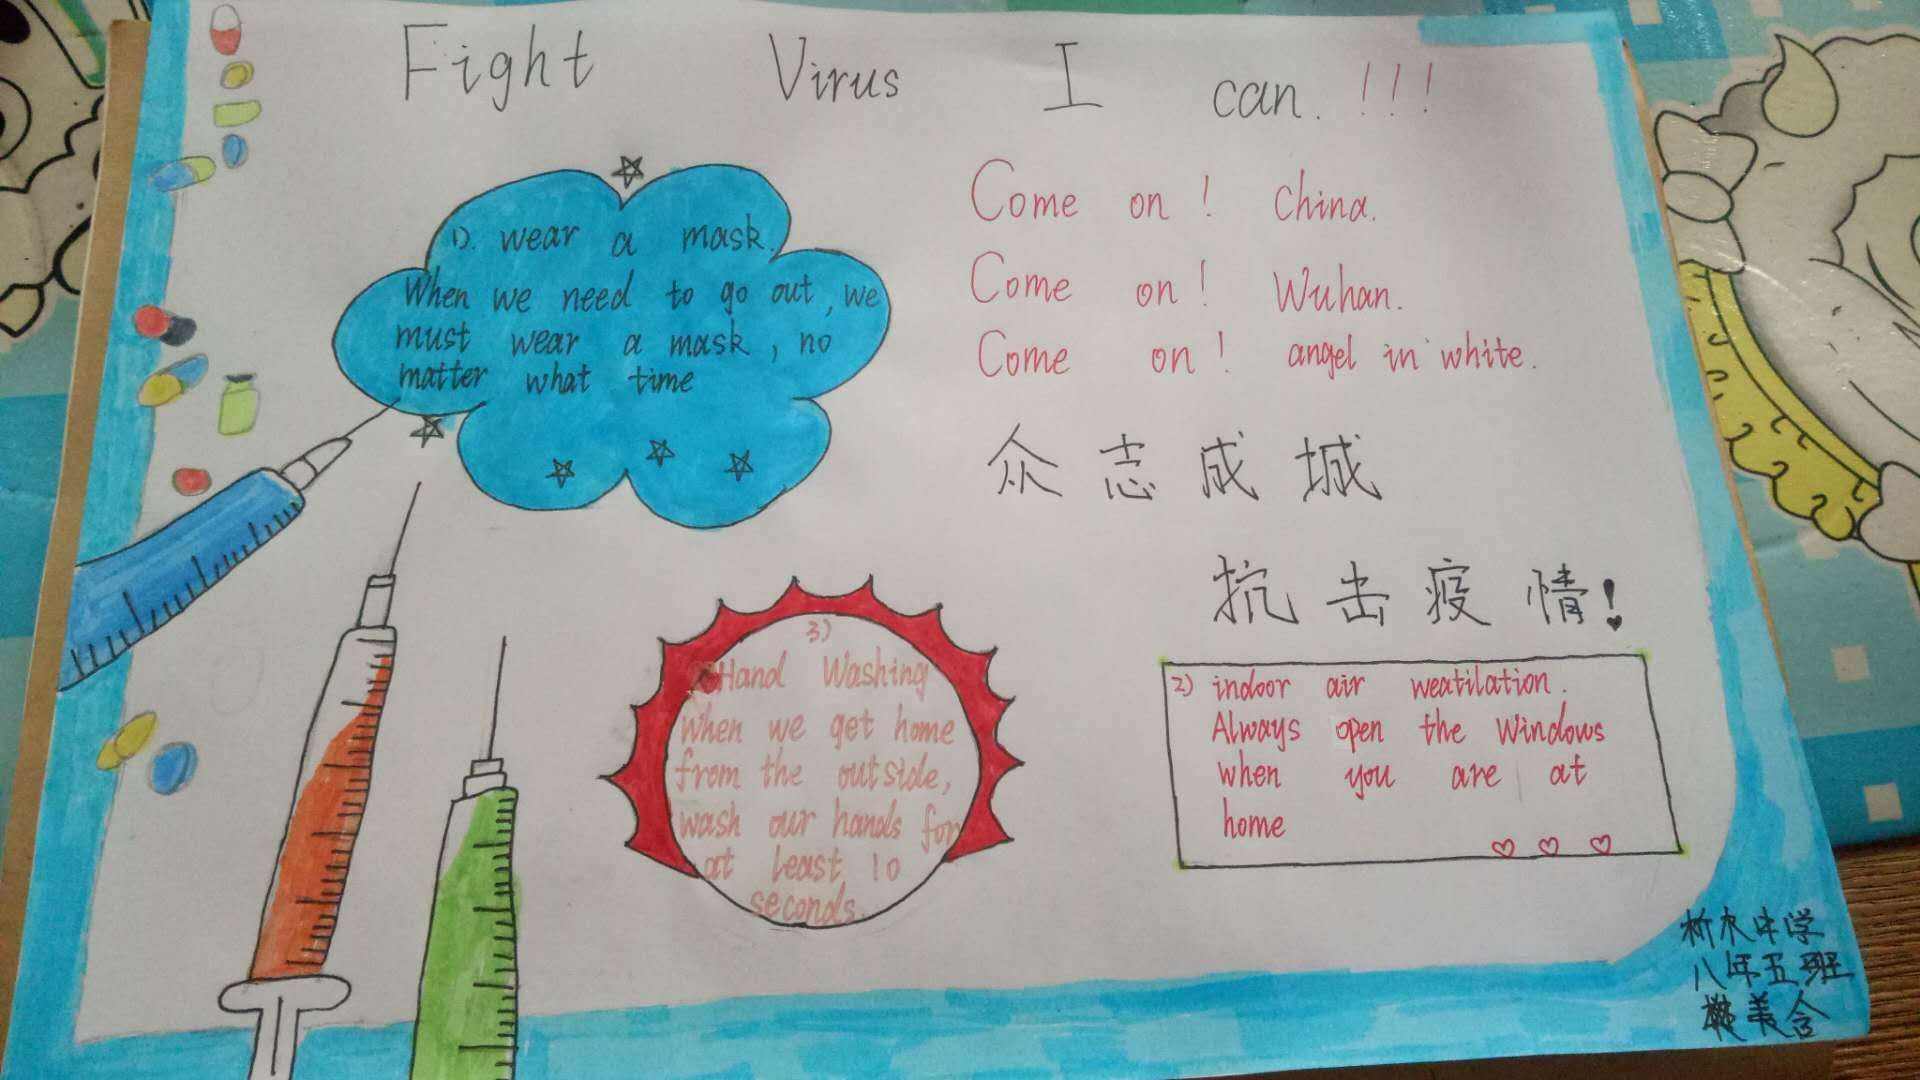 Fight Virus I can.!!!
1). wear a mask.
When we need to go out, we
must wear a mask, no
matter what time
Come on! China.
Come on! Wuhan.
Come on! angel in white.
众志成城
抗击疫情!
3)
Hand Washing
when we get home
from the outside,
wash our hands for
at least 10
seconds.
2) indoor air weatilation.
Always open the windows
when you are at
home
水中学
八年五班
美含